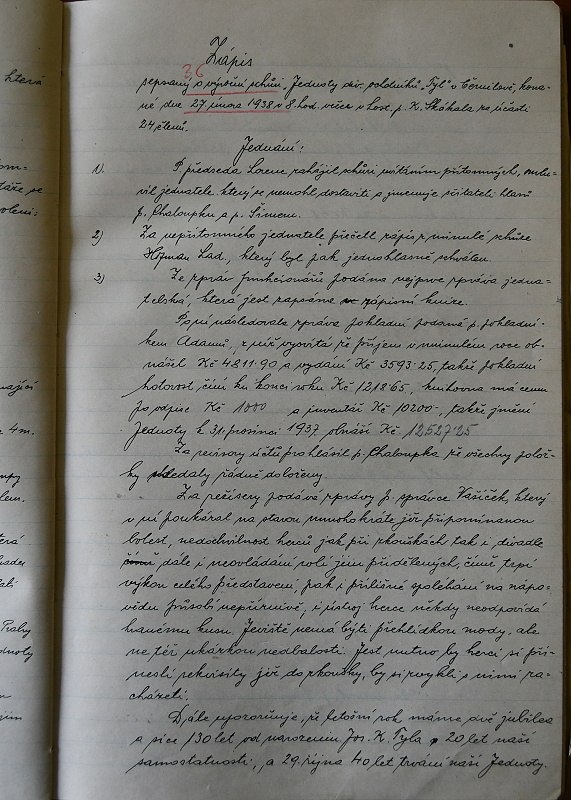 která
Zápis
36
sepsaný o výroční schůzi Jednoty div. ochotníků „Tyl" v Černilově, kona-
né dne 27. února 1938 v 8. hod. večer v host. p. K. Skákala za účasti
24 členů.
Jednání:
1). Předseda Lorenc zahájil schůzi uvítáním přítomných, omlu-
vil jednatele, který se nemohl dostaviti a jmenuje sčitateli hlasů
p. Chaloupku a p. Šimenu.
2) Za nepřítomného jednatele přečetl zápis z minulé schůze
Hofman Lad., který byl pak jednohlasně schválen.
3) Ze zpráv funkcionářů podána nejprve zpráva jedna-
telská, která jest zapsána v zápisní knize.
Poté následovala zpráva pokladní podaná p. pokladní-
kem Adamů, z níž vysvítá že příjem v minulém roce ob-
nášel Kč 4811·90 a vydání Kč 3593·25, takže pokladní
hotovost činí ku konci roku Kč 1218·65, knihovna má cenu
po odpise Kč 1000 a inventář Kč 10200·, takže jmění
Jednoty k 31. prosinci 1937 obnáší Kč 12527·25
Za revisory účtů prohlásil p. Chaloupka že všechny polož-
ky shledaly řádně doloženy.
Za režiséry podává zprávy p. správce Vašíček, který
v ní poukázal na starou mnohokráte již připomínanou
bolest, nedochvilnost herců jak při zkouškách tak i divadle
dále i neovládání rolí jim přidělených, čímž trpí
výkon celého představení, pak i přílišné spoléhání na nápo-
vědu působí nepříznivě, i ústroj herce někdy neodpovídá
hranému kusu. Jeviště nemá býti přehlídkou mody, ale
ne též ukázkou nedbalosti. Jest nutno, by herci si při-
nesli rekvisity již do zkoušky, by si zvykli s nimi za-
cházeti.
Dále upozorňuje, že letošní rok máme dvě jubilea
a sice 130 let od narozenin Jos. K. Tyla a 20 let naší
samostatnosti, a 29. října 40 let trvání naší Jednoty.